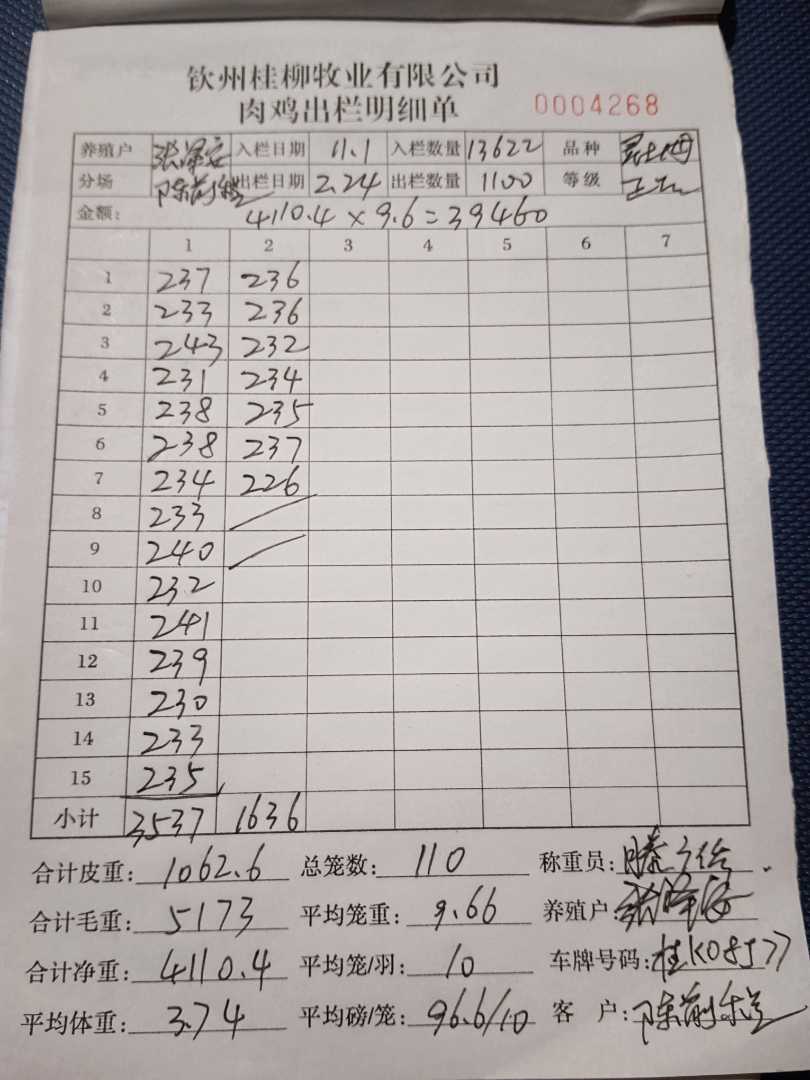 钦州桂柳牧业有限公司
肉鸡出栏明细单 0004268
养殖户 入栏日期 11.1 入栏数量 13622 品种
分场 出栏日期 2.24 出栏数量 1100 等级
金额: 4110.4×9.6=39460
1 2 3 4 5 6 7
1 237 236
2 233 236
3 243 232
4 231 234
5 238 235
6 238 237
7 234 226
8 233
9 240
10 232
11 241
12 239
13 230
14 233
15 235
小计 3537 1636
合计皮重: 1062.6 总笼数: 110 称重员:
合计毛重: 5173 平均笼重: 9.66 养殖户:
合计净重: 4110.4 平均笼/羽: 10 车牌号码: 桂K08J77
平均体重: 3.74 平均磅/笼: 96.6/10 客 户: